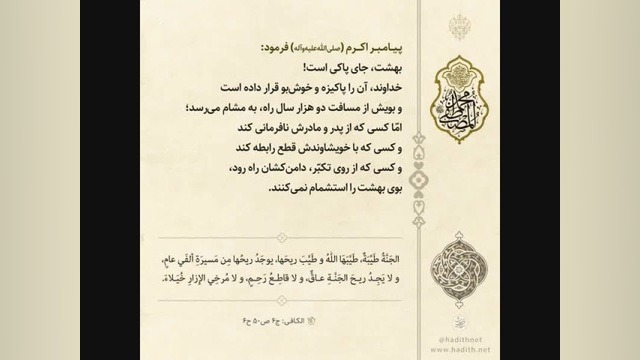 پیامبر اکرم (صلی‌الله‌علیه‌وآله) فرمود:
بهشت، جای پاکی است!
خداوند، آن را پاکیزه و خوش‌بو قرار داده است
و بویش از مسافت دو هزار سال راه، به مشام می‌رسد؛
امّا کسی که از پدر و مادرش نافرمانی کند
و کسی که با خویشاوندش قطع رابطه کند
و کسی که از روی تکبّر، دامن‌کشان راه رود،
بوی بهشت را استشمام نمی‌کنند.
الجَنَّةُ طَیِّبَةٌ، طَیَّبَهَا اللهُ و طَیَّبَ ریحَها، یوجَدُ ریحُها مِن مَسیرَةِ ألفَي عامٍ،
و لا یَجِدُ ریحَ الجَنَّةِ عاقٌّ، و لا قاطِعُ رَحِمٍ، و لا مُرخِي الإزارِ خُیَلاءَ.
الکافی: ج۶ ص۵۰ ح۶
@hadithnet
www.hadith.net